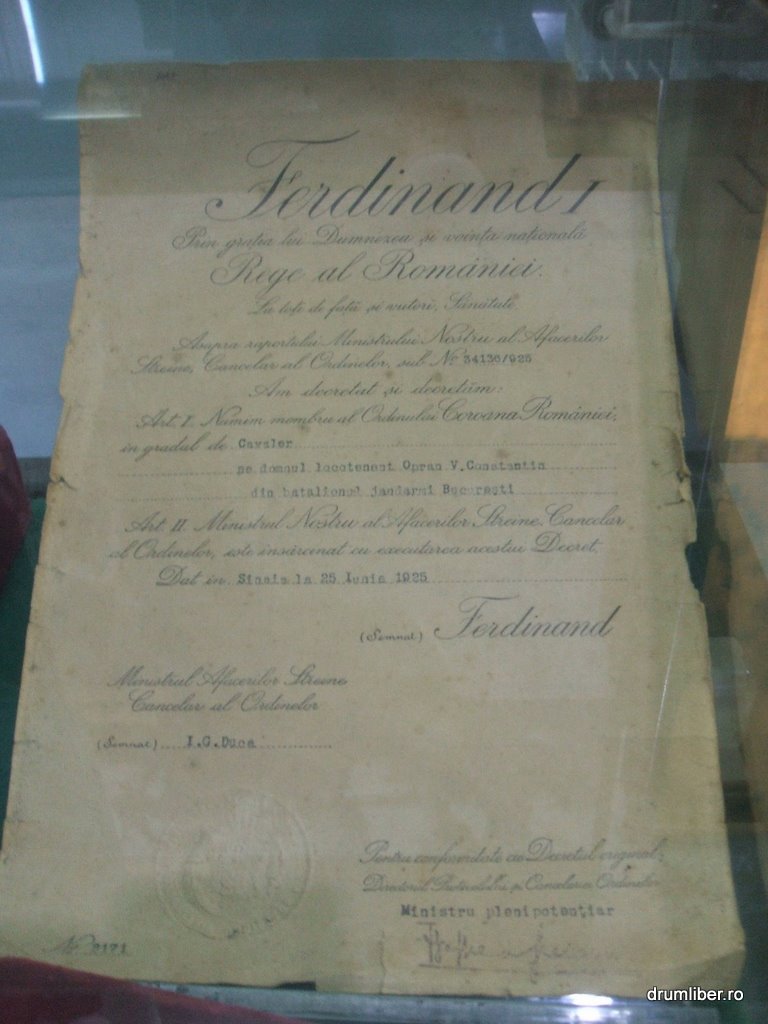 Ferdinand I
Prin grația lui Dumnezeu și voința națională
Rege al României.
La toți de față și viitori, Sănătate
Asupra raportului Ministrului Nostru al Afacerilor
Streine, Cancelar al Ordinelor, sub No 34136/925
Am decretat și decretăm:
Art. I. Numim membru al Ordinului Coroana României,
in gradul de Cavaler
pe domnul locotenent Opran V. Constantin
din batalionul jandarmi Bucuresti
Art. II. Ministrul Nostru al Afacerilor Streine, Cancelar
al Ordinelor, este însărcinat cu executarea acestui Decret.
Dat in Sinaia la 25 Iunie 1925
(Semnat) Ferdinand
Ministrul Afacerilor Streine
Cancelar al Ordinelor
(Semnat) I.G.Duca
Pentru conformitate cu Decretul original,
Directorul Protocolului și Cancelariei Ordinelor
Ministru plenipotențiar
No 2171
drumliber.ro